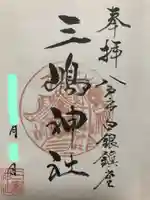 奉拝
八戸市白銀鎮座
三嶋神社
月
日